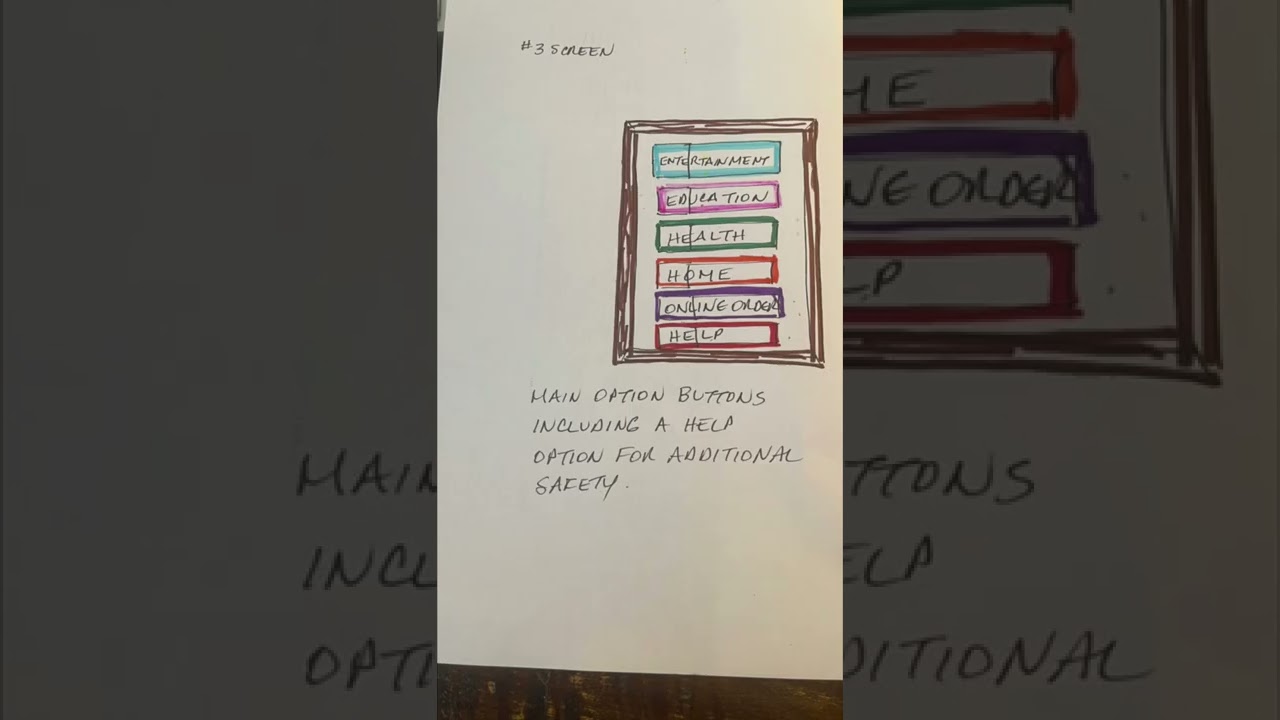 #3 SCREEN
ENTERTAINMENT
EDUCATION
HEALTH
HOME
ONLINE ORDER
HELP
MAIN OPTION BUTTONS
INCLUDING A HELP
OPTION FOR ADDITIONAL
SAFETY.